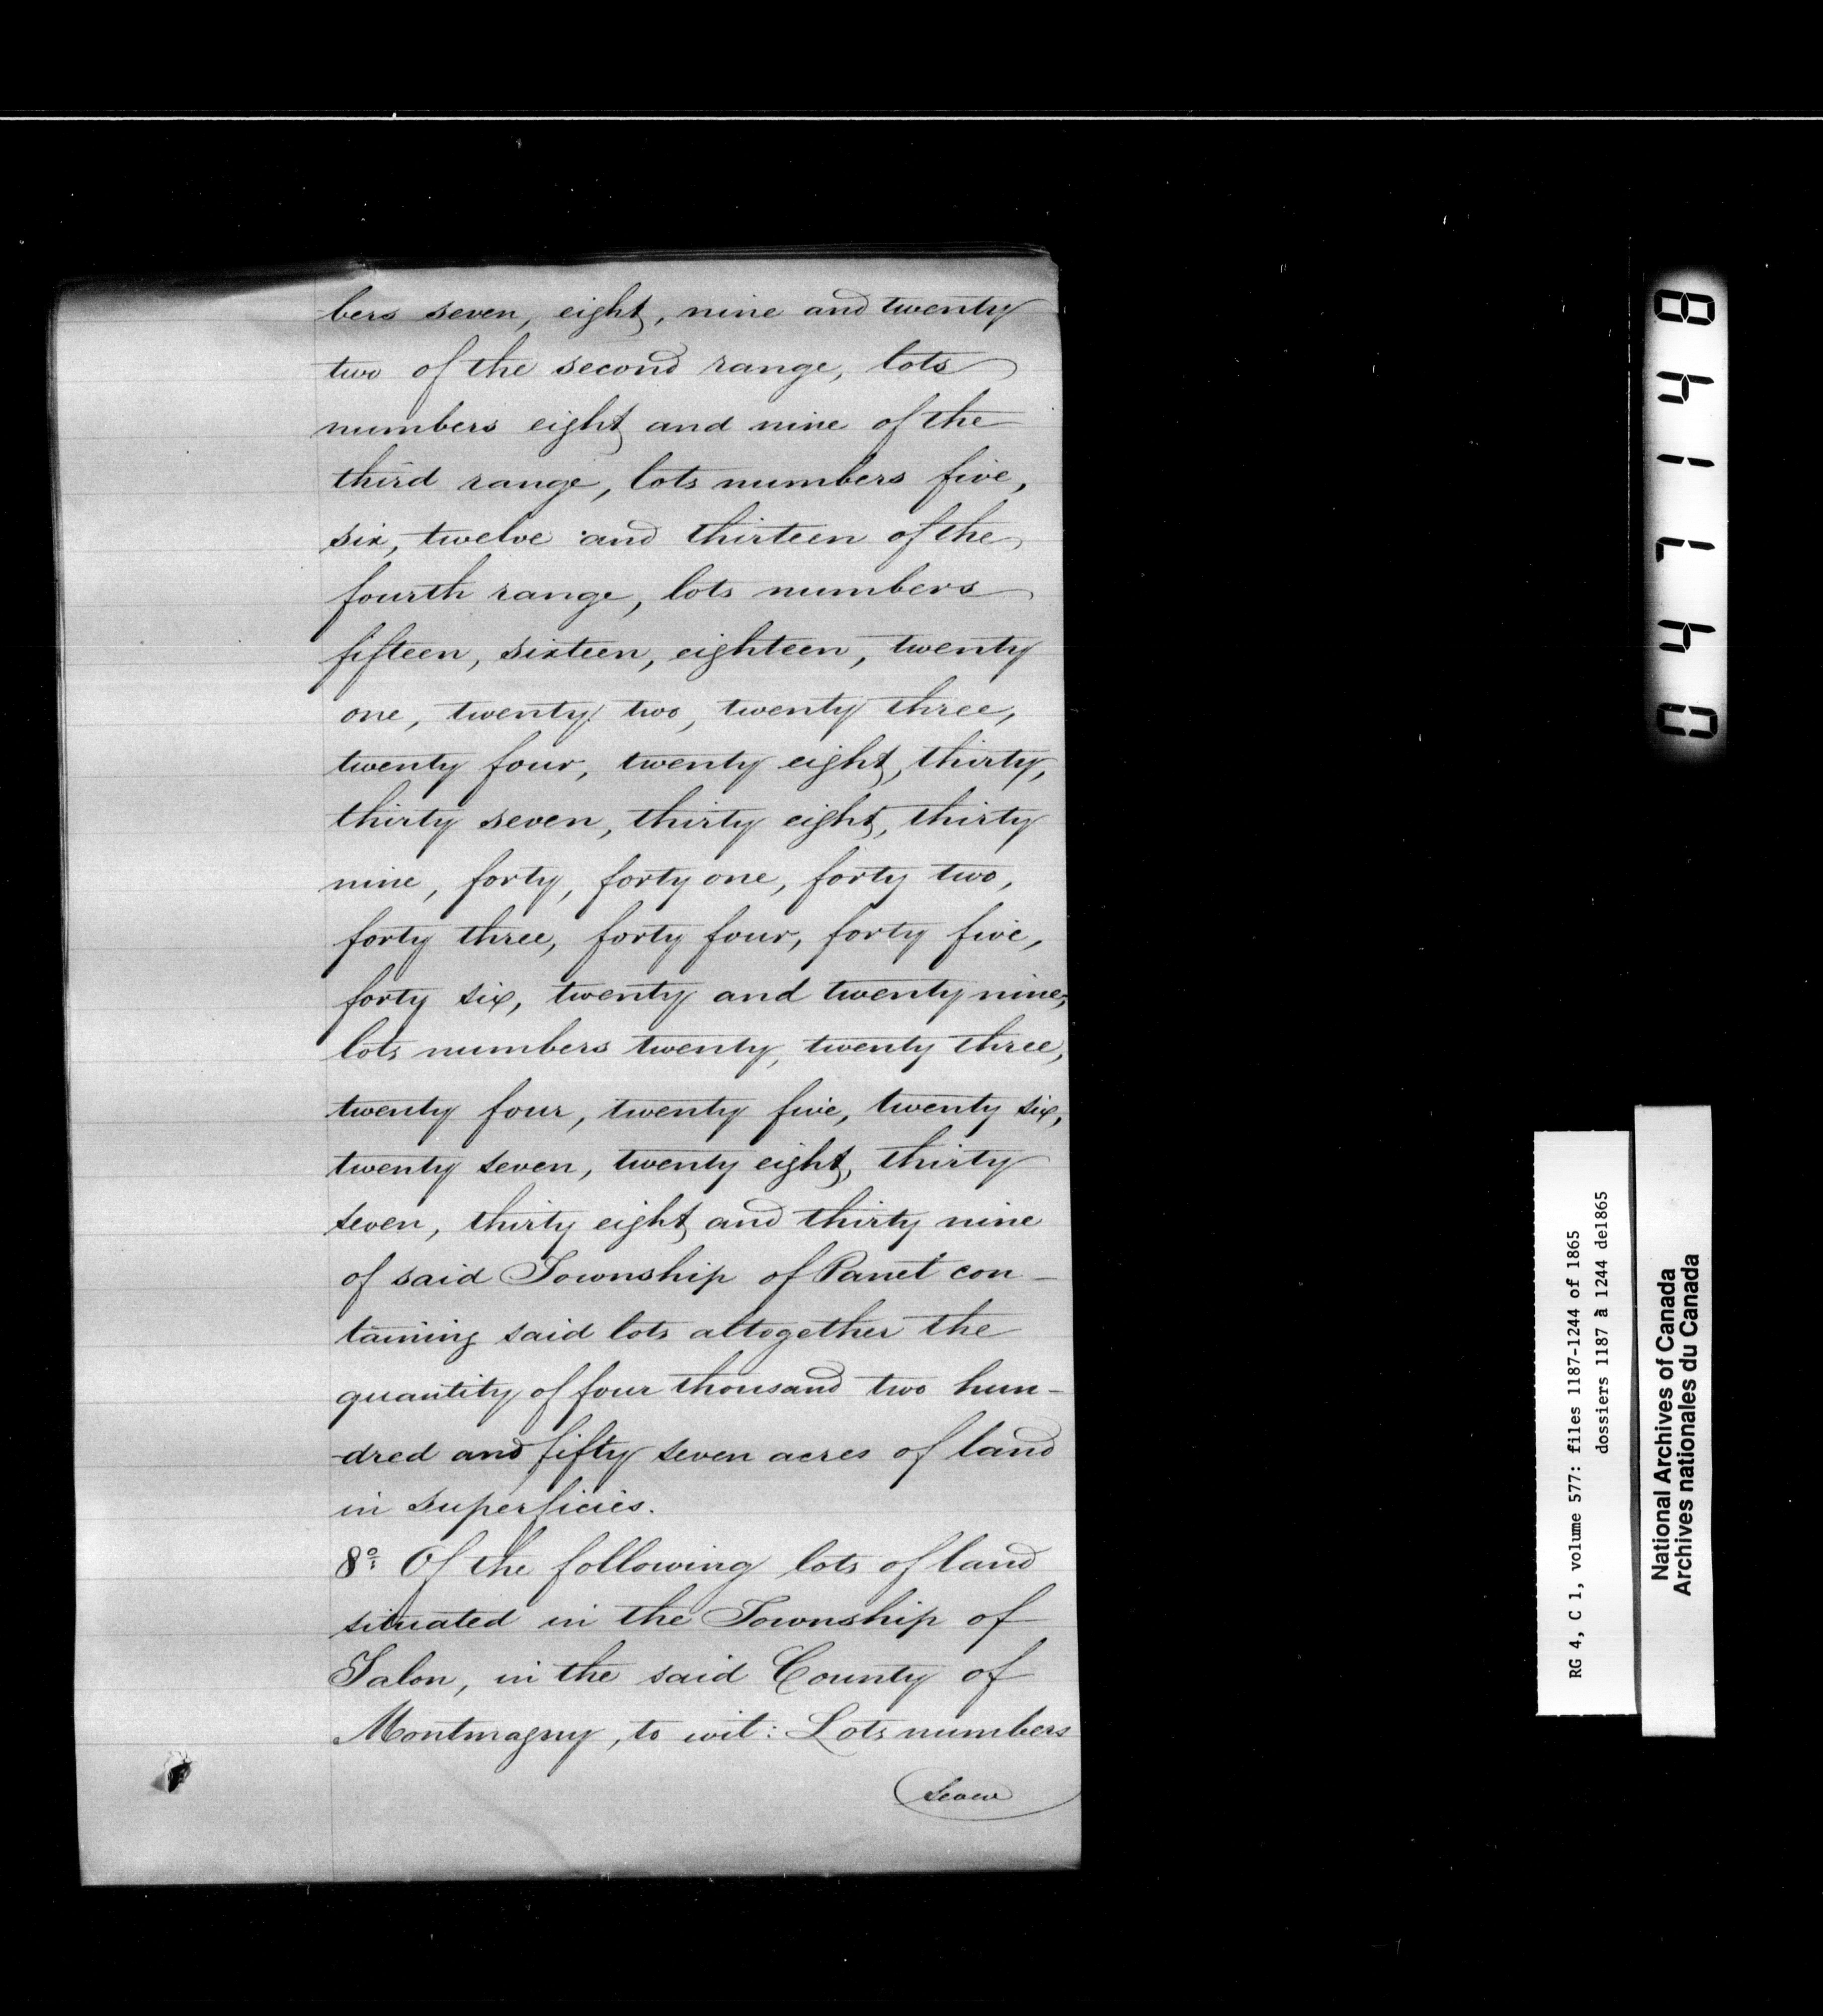 bers seven, eight, nine and twenty
two of the second range, lots
numbers eight and nine of the
third range, lots numbers five,
six, twelve and thirteen of the
fourth range, lots numbers
fifteen, sixteen, eighteen, twenty
one, twenty two, twenty three,
twenty four, twenty eight, thirty,
thirty seven, thirty eight, thirty
nine, forty, forty one, forty two,
forty three, forty four, forty five,
forty six, twenty and twenty nine,
lots numbers twenty, twenty three,
twenty four, twenty five, twenty six,
twenty seven, twenty eight, thirty
seven, thirty eight and thirty nine
of said Township of Panet con-
taining said lots altogether the
quantity of four thousand two hun-
-dred and fifty seven acres of land
in superficies.
8º: Of the following lots of land
situated in the Township of
Talon, in the said County of
Montmagny, to wit: Lots numbers
seven
047148
RG 4, C 1, volume 577: files 1187-1244 of 1865
dossiers 1187 à 1244 de1865
National Archives of Canada
Archives nationales du Canada